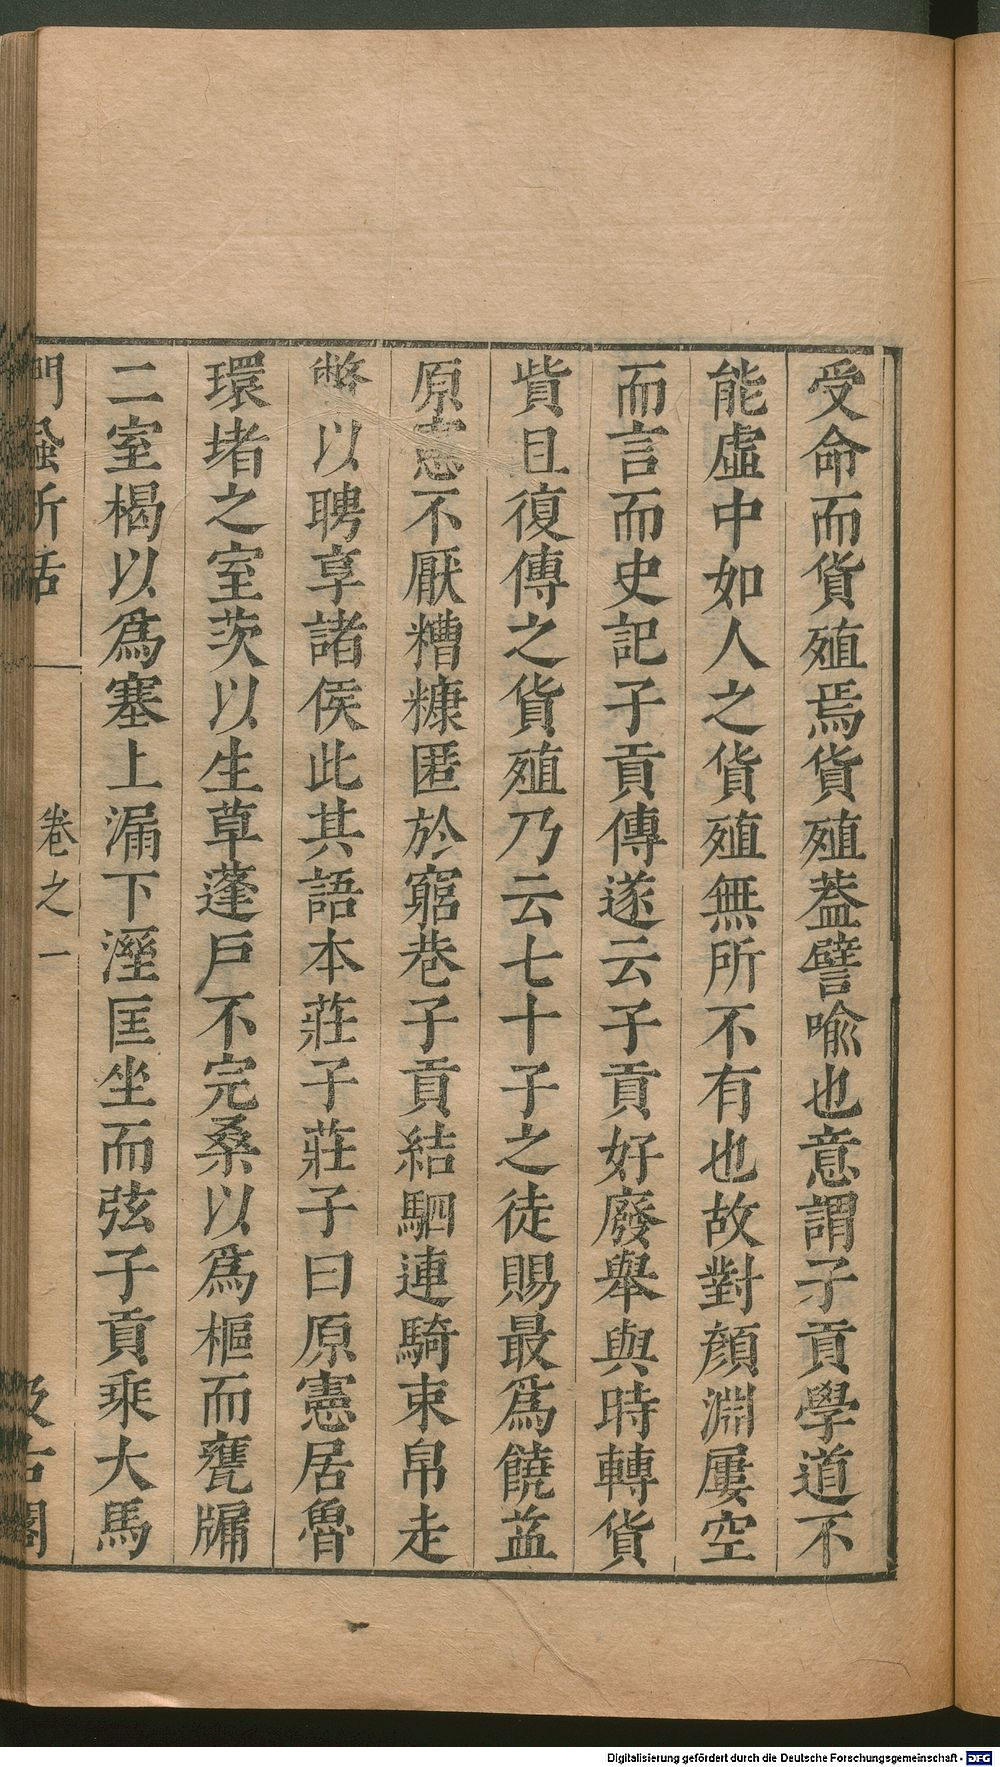 受命而貨殖焉貨殖蓋譬喻也意謂子貢學道不
能虛中如人之貨殖無所不有也故對顏淵屢空
而言而史記子貢傳遂云子貢好廢舉與時轉貨
貲且復傳之貨殖乃云七十子之徒賜最爲饒益
原憲不厭糟糠匿於窮巷子貢結駟連騎束帛走
幣以聘享諸侯此其語本莊子莊子曰原憲居魯
環堵之室茨以生草蓬戶不完桑以爲樞而甕牖
二室褐以爲塞上漏下溼匡坐而弦子貢乘大馬
門蝨新話
卷之一
汲古閣
Digitalisierung gefördert durch die Deutsche Forschungsgemeinschaft - DFG